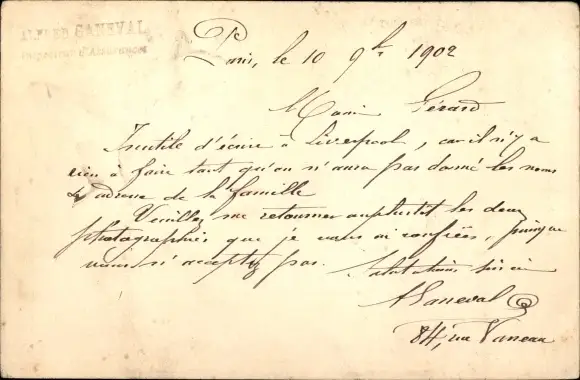 ALFRED GANEVAL
Inspecteur d'Assurances
Paris, le 10 9bre 1902
Gérard
Inutile d'écrire à Liverpool, car il n'y a
rien à faire tant qu'on n'aura pas donné les noms
& adresse de la famille
Veuillez me retourner au plustôt les deux
photographies que je vous ai confiées, puisque
vous n'acceptez pas. Salutations
AGaneval
84, rue Vaneau